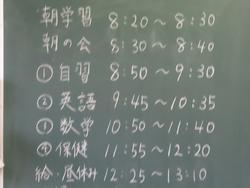 朝学習 8:20～8:30
朝の会 8:30～8:40
①自習 8:50～9:30
②英語 9:45～10:35
③数学 10:50～11:40
④保健 11:55～12:20
給・昼休み 12:25～13:10